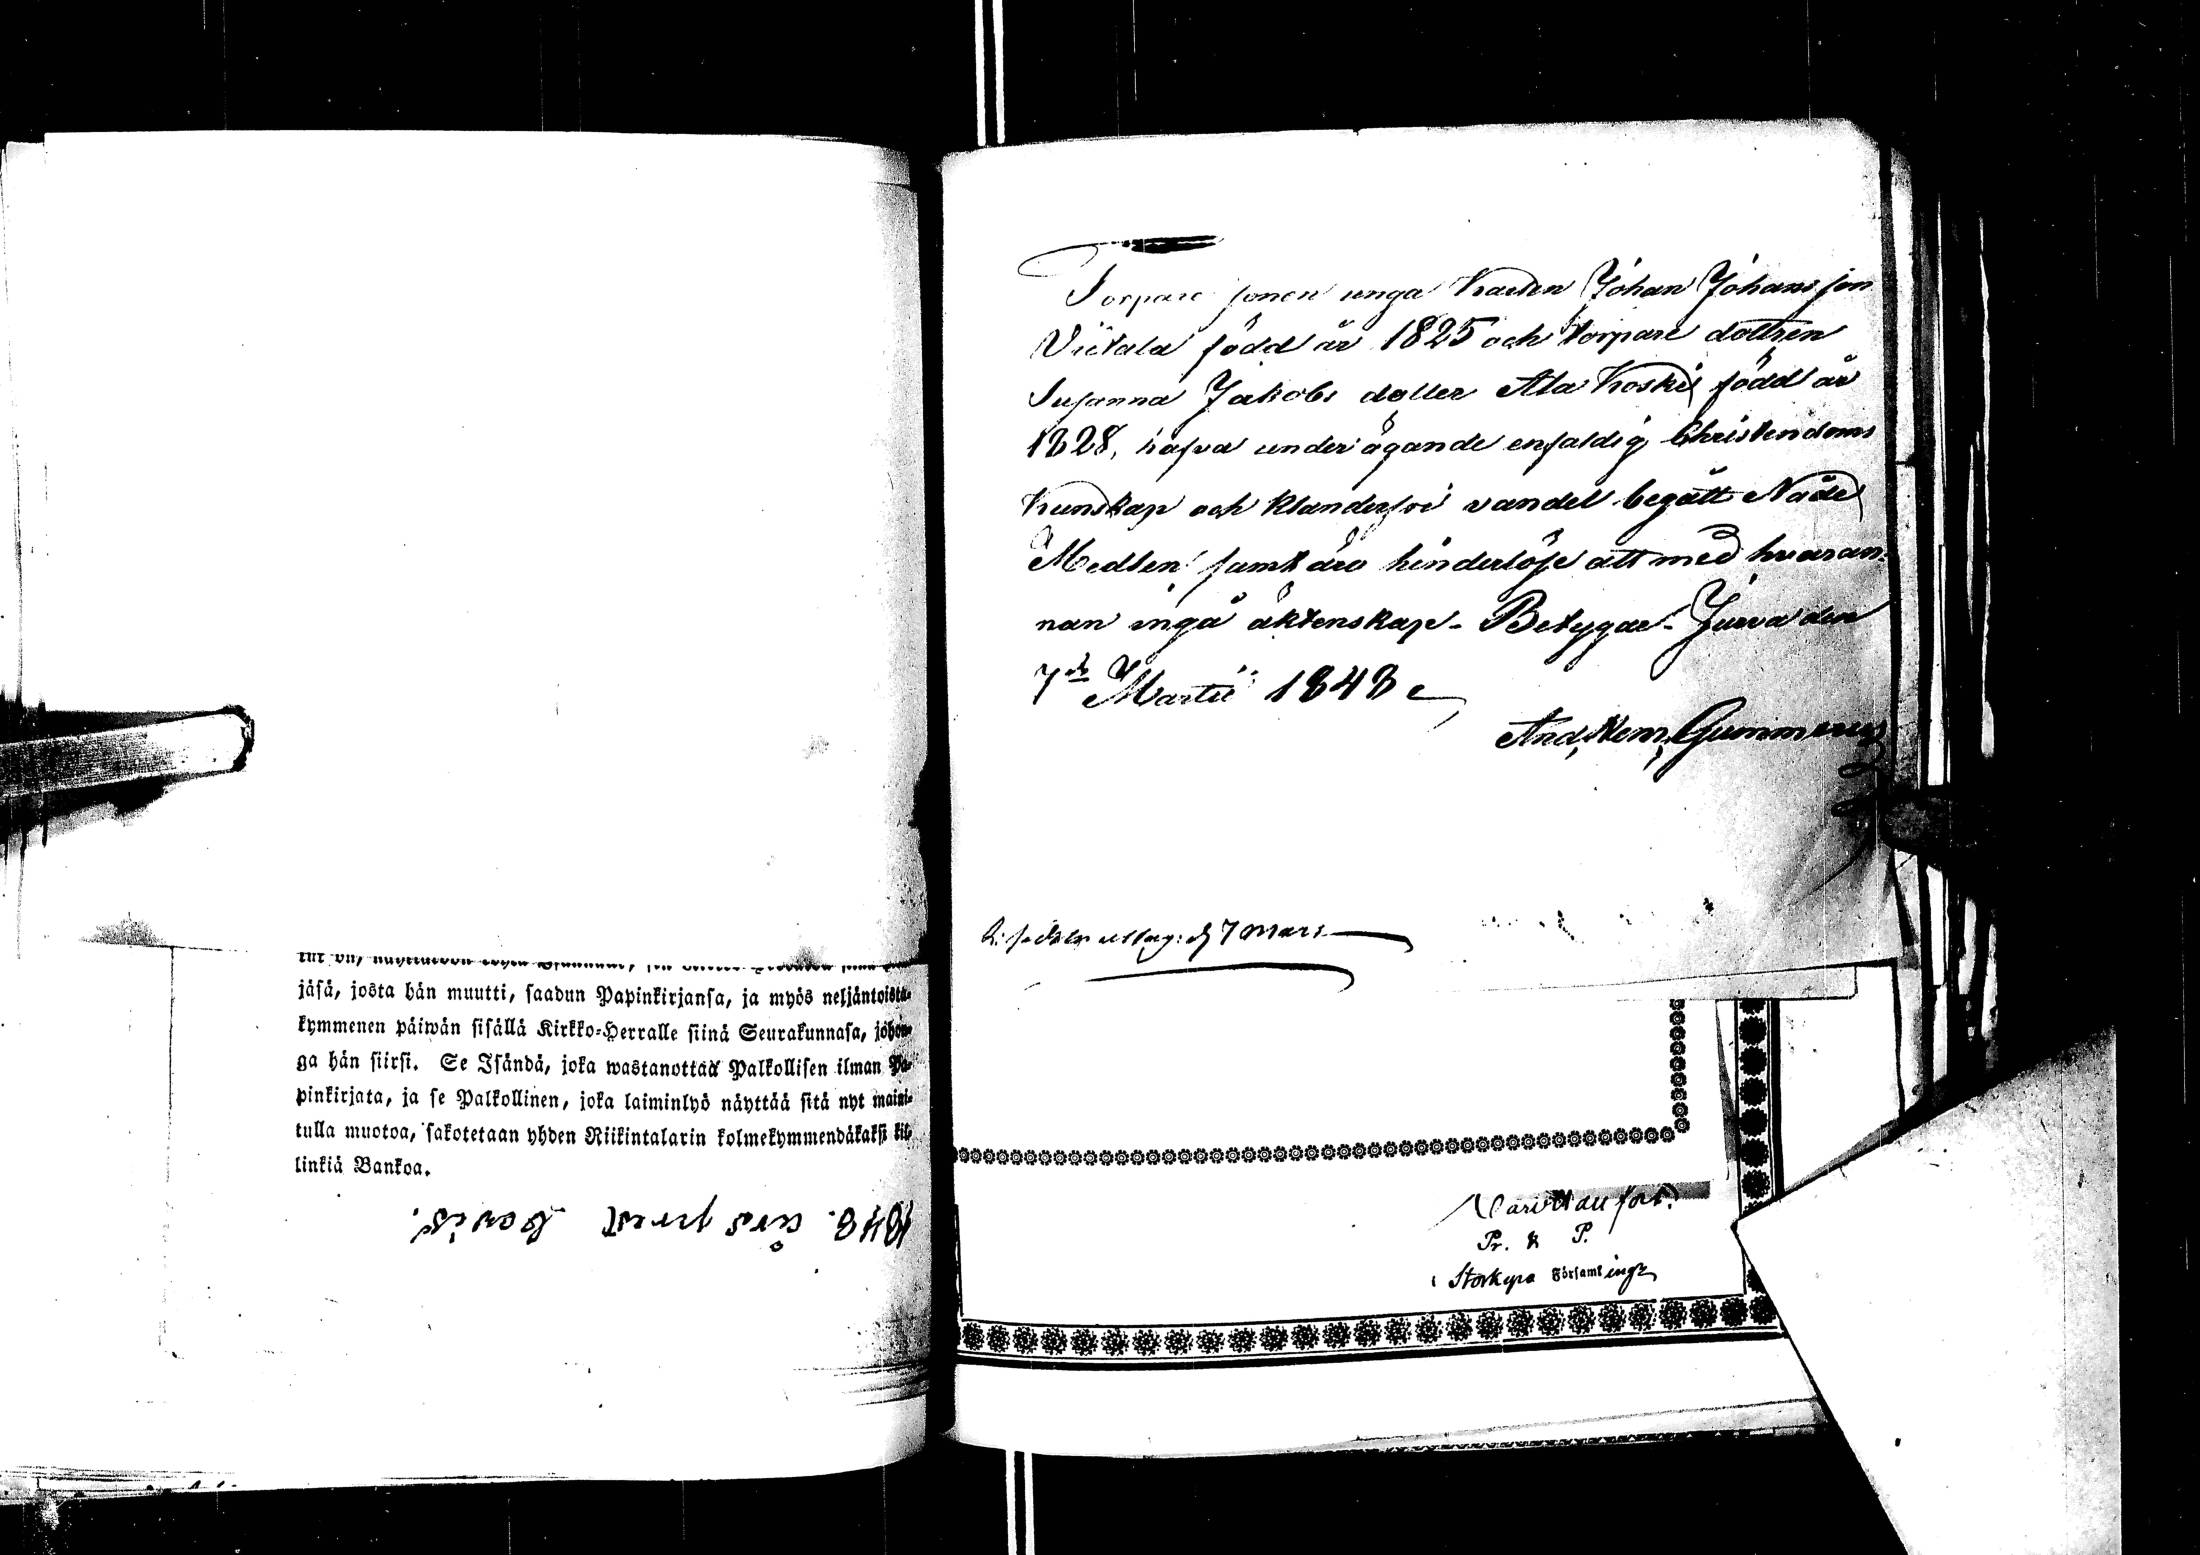 jäsä, josta hän muutti, saadun Papinkirjansa, ja myös neljäntoista-
kymmenen päiwän sisällä Kirkko-Herralle siinä Seurakunnasa, johon-
ga hän siirsi. Se Isändä, joka wastanottaa Palkollisen ilman Pa-
pinkirjata, ja se Palkollinen, joka laiminlyö näyttää sitä nyt maini-
tulla muotoa, sakotetaan yhden Riikintalarin kolmekymmendäkaksi kil-
linkiä Bankoa.
1848. års prest bevis.
Torpare sonen unga Karlen Johan Johansson
Viitala född år 1825 och torpare dottren
Susanna Jakobs dotter Ala Koski född år
1828, hafva under ägande enfaldig Christendoms
Kunskap och klanderfri vandel begått Nåde
Medlen samt äro hinderlöse att med hvaran-
nan ingå äktenskap. Betygar Jurva den
7de Martii 1848
And. Hem. Gummerus
uttag: d 7 mars
Pr. & P.
Storkyro Församlings